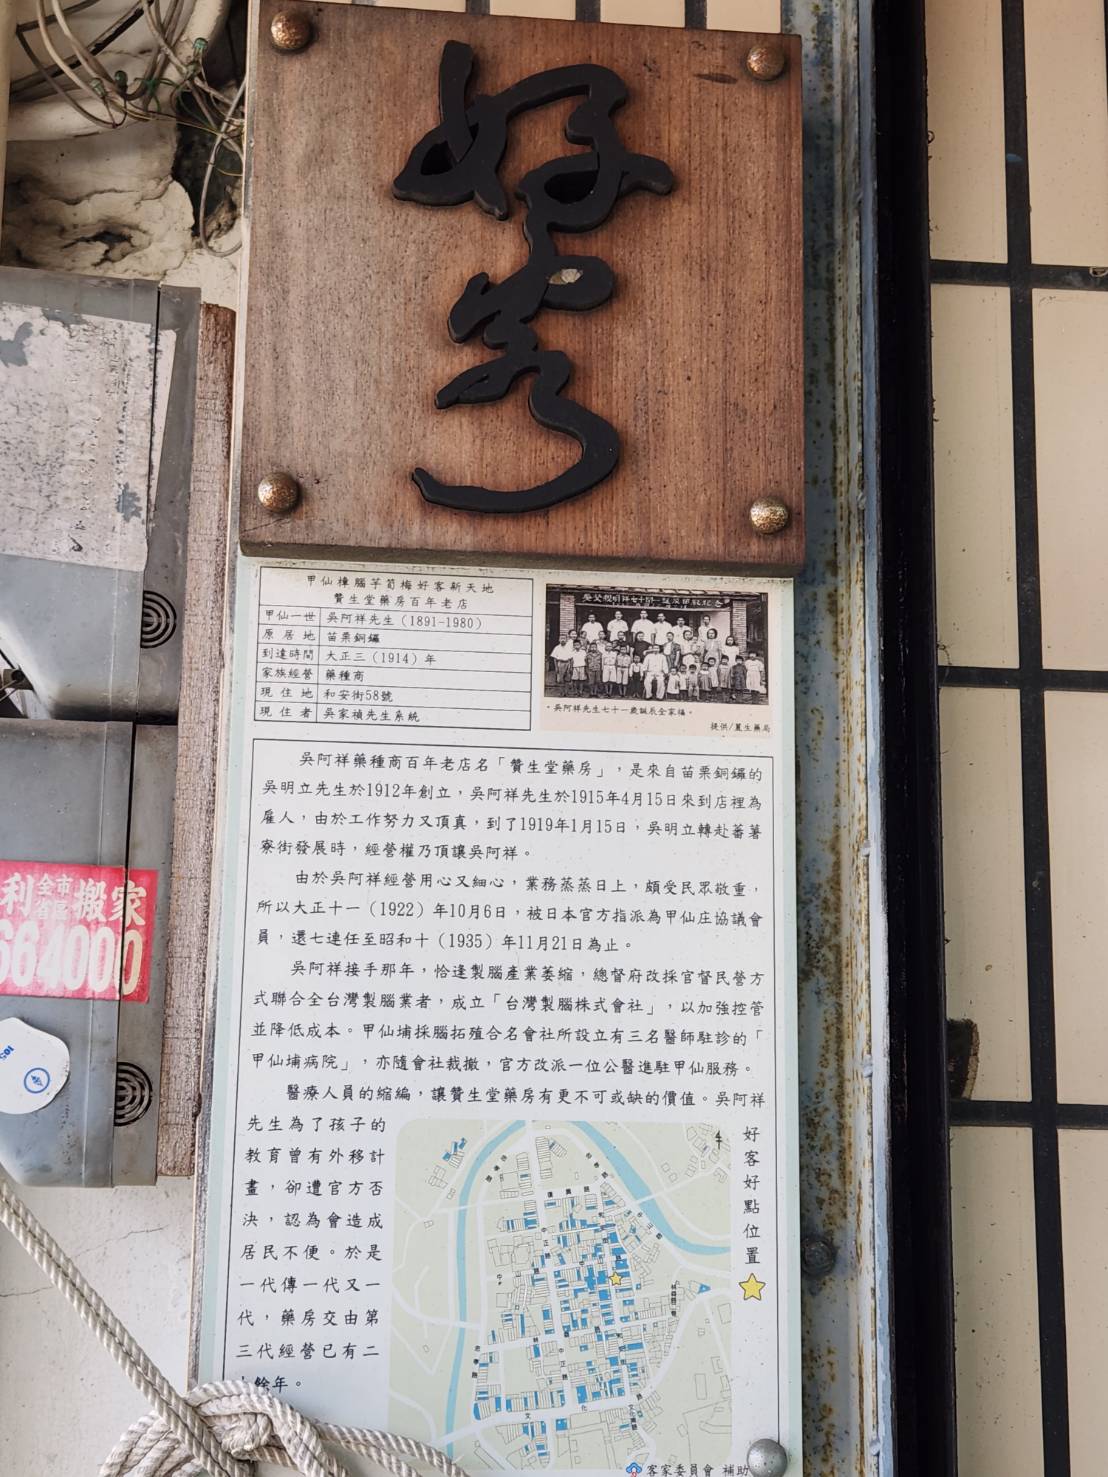 好客
甲仙樟腦芋筍梅好客新天地
贊生堂藥房百年老店
甲仙一世 吳阿祥先生（1891-1980）
原居地 苗栗銅鑼
到達時間 大正三（1914）年
家族經營 藥種商
現住地 和安街58號
現住者 吳家禎先生系統
・吳阿祥先生七十一歲誕辰全家福。
提供/置生藥局
吳阿祥藥種商百年老店名「贊生堂藥房」，是來自苗栗銅鑼的
吳明立先生於1912年創立，吳阿祥先生於1915年4月15日來到店裡為
雇人，由於工作努力又頂真，到了1919年1月15日，吳明立轉赴蕃薯
寮街發展時，經營權乃頂讓吳阿祥。
由於吳阿祥經營用心又細心，業務蒸蒸日上，頗受民眾敬重，
所以大正十一（1922）年10月6日，被日本官方指派為甲仙庄協議會
員，還七連任至昭和十（1935）年11月21日為止。
吳阿祥接手那年，恰逢製腦產業萎縮，總督府改採官督民營方
式聯合全台灣製腦業者，成立「台灣製腦株式會社」，以加強控管
並降低成本。甲仙埔採腦拓殖合名會社所設立有三名醫師駐診的「
甲仙埔病院」，亦隨會社裁撤，官方改派一位公醫進駐甲仙服務。
醫療人員的縮編，讓贊生堂藥房有更不可或缺的價值。吳阿祥
先生為了孩子的
教育曾有外移計
畫，卻遭官方否
決，認為會造成
居民不便。於是
一代傳一代又一
代，藥房交由第
三代經營已有二
十餘年。
好客好點位置
客家委員會 補助
利 全市 搬家
664000